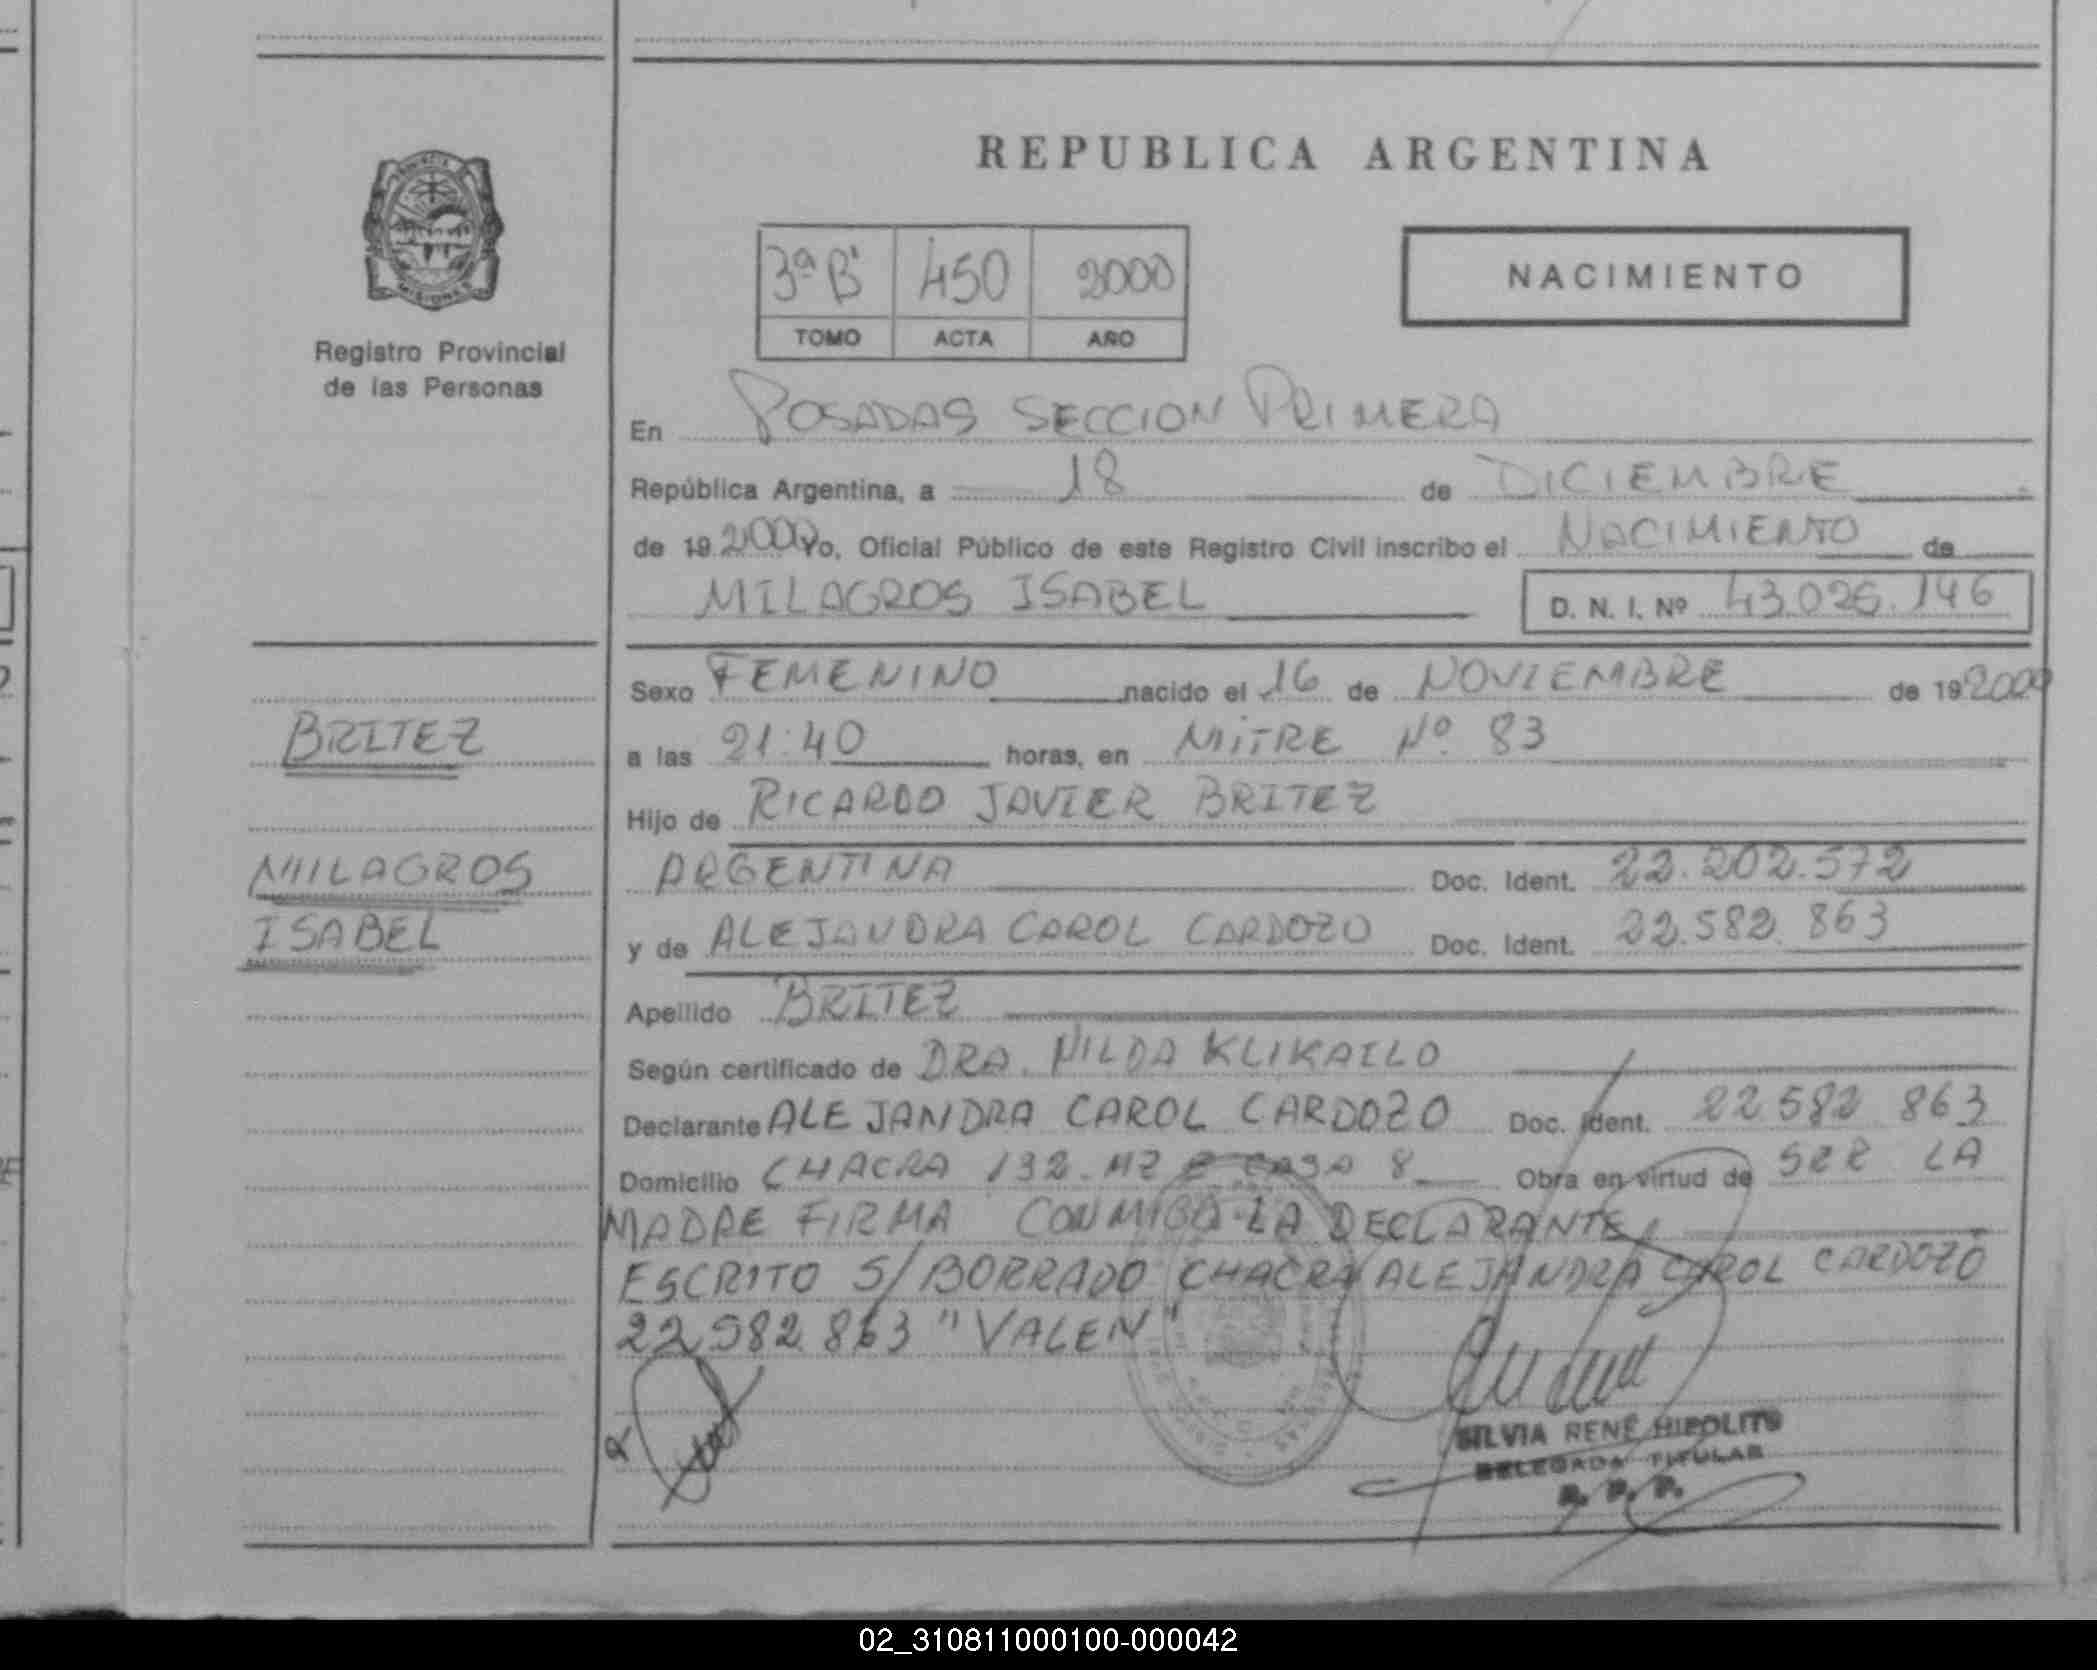 REPUBLICA ARGENTINA
3ª B 450 2000
TOMO ACTA AÑO
NACIMIENTO
MISIONES
Registro Provincial
de las Personas
En POSADAS SECCION PRIMERA
República Argentina, a 18 de DICIEMBRE
de 19 2000 Yo, Oficial Público de este Registro Civil inscribo el NACIMIENTO de
MILAGROS ISABEL D. N. I. Nº 43.026.146
Sexo FEMENINO nacido el 16 de NOVIEMBRE de 19 2000
a las 21:40 horas, en MITRE Nº 83
Hijo de RICARDO JAVIER BRITEZ
ARGENTINA Doc. Ident. 22.202.572
y de ALEJANDRA CAROL CARDOZO Doc. Ident. 22.582.863
Apellido BRITEZ
Según certificado de DRA. NILDA KLIKAILO
Declarante ALEJANDRA CAROL CARDOZO Doc. Ident. 22582 863
Domicilio CHACRA 132 MZ E CASA 8 Obra en virtud de SER LA
MADRE FIRMA CONMIGO LA DECLARANTE,
ESCRITO S/BORRADO CHACRA ALEJANDRA CAROL CARDOZO
22582.863 "VALEN"
BRITEZ
MILAGROS
ISABEL
SILVIA RENÉ HIPOLITO
DELEGADA TITULAR
R. P. P.
02_310811000100-000042